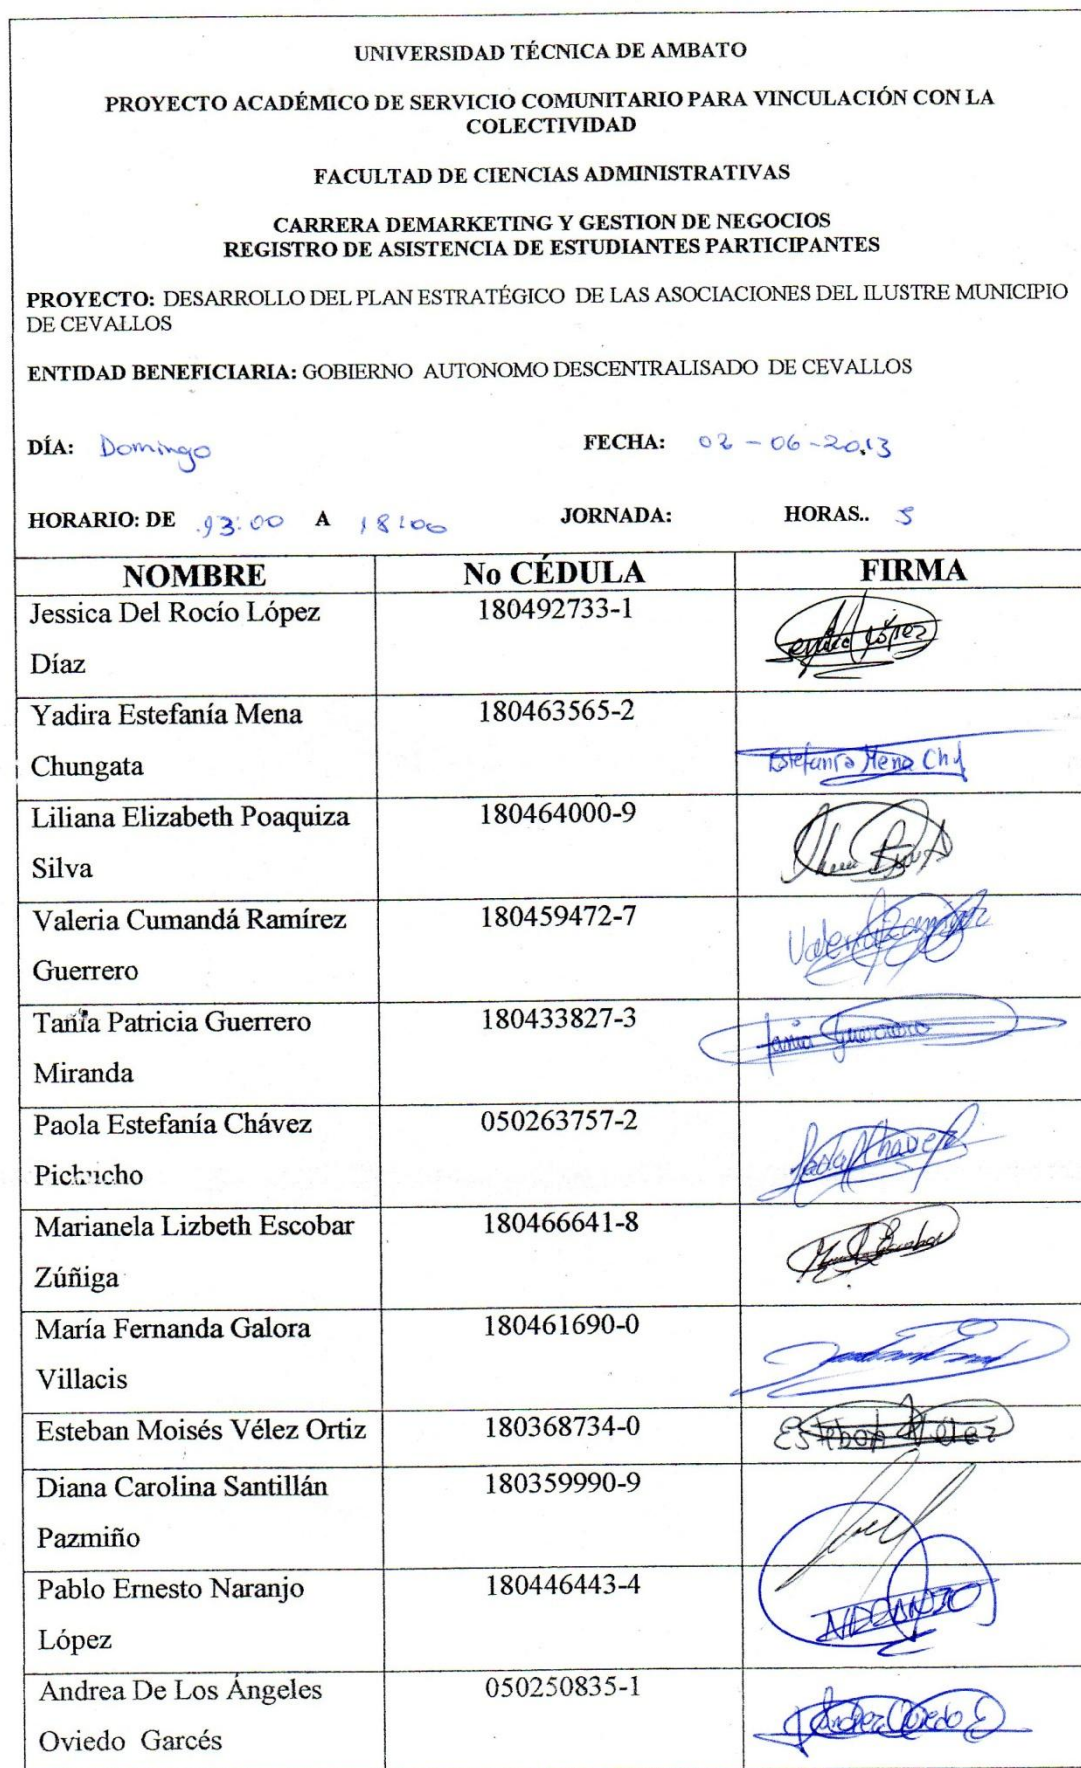 UNIVERSIDAD TÉCNICA DE AMBATO
PROYECTO ACADÉMICO DE SERVICIO COMUNITARIO PARA VINCULACIÓN CON LA
COLECTIVIDAD
FACULTAD DE CIENCIAS ADMINISTRATIVAS
CARRERA DEMARKETING Y GESTION DE NEGOCIOS
REGISTRO DE ASISTENCIA DE ESTUDIANTES PARTICIPANTES
PROYECTO: DESARROLLO DEL PLAN ESTRATÉGICO DE LAS ASOCIACIONES DEL ILUSTRE MUNICIPIO
DE CEVALLOS
ENTIDAD BENEFICIARIA: GOBIERNO AUTONOMO DESCENTRALISADO DE CEVALLOS
DÍA: Domingo FECHA: 02-06-2013
HORARIO: DE 13:00 A 18:00 JORNADA: HORAS.. 5
NOMBRE No CÉDULA FIRMA
Jessica Del Rocío López 180492733-1
Díaz López
Yadira Estefanía Mena 180463565-2
Chungata Estefanía Mena Ch
Liliana Elizabeth Poaquiza 180464000-9
Silva
Valeria Cumandá Ramírez 180459472-7
Guerrero Valeria Ramírez
Tania Patricia Guerrero 180433827-3 Tania Guerrero
Miranda
Paola Estefanía Chávez 050263757-2
Pichucho Paola Chavez
Marianela Lizbeth Escobar 180466641-8
Zúñiga Escobar
María Fernanda Galora 180461690-0
Villacis
Esteban Moisés Vélez Ortiz 180368734-0 Esteban Vélez
Diana Carolina Santillán 180359990-9
Pazmiño
Pablo Ernesto Naranjo 180446443-4
López NARANJO
Andrea De Los Ángeles 050250835-1
Oviedo Garcés Andrea Oviedo G